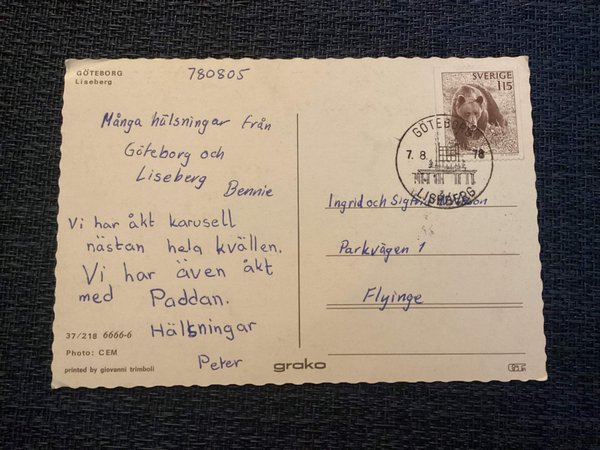 GÖTEBORG
Liseberg
780805
SVERIGE
115
GÖTEBORG
7.8. 78
LISEBERG
Många hälsningar från
Göteborg och
Liseberg
Bennie
Vi har åkt karusell
nästan hela kvällen.
Vi har även åkt
med Paddan.
Hälsningar
Peter
Ingrid och
Parkvägen 1
Flyinge
37/218 6666-6
Photo: CEM
printed by giovanni trimboli
grako